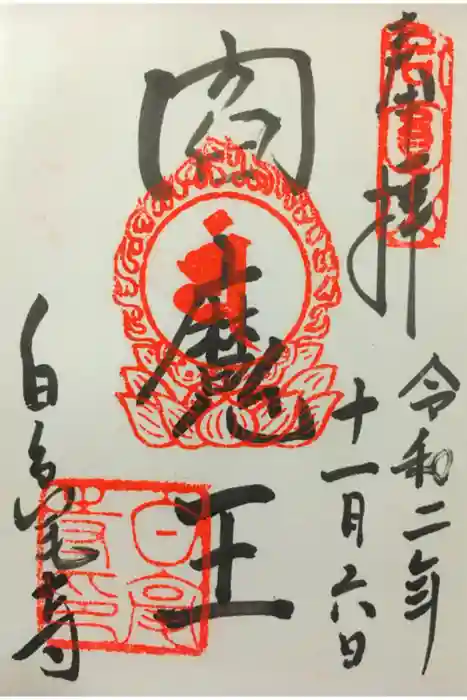 奉拝
令和二年
十一月六日
閻魔王
白毫寺